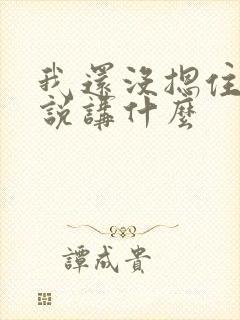 我還沒摁住
說講什麼
譚成貴